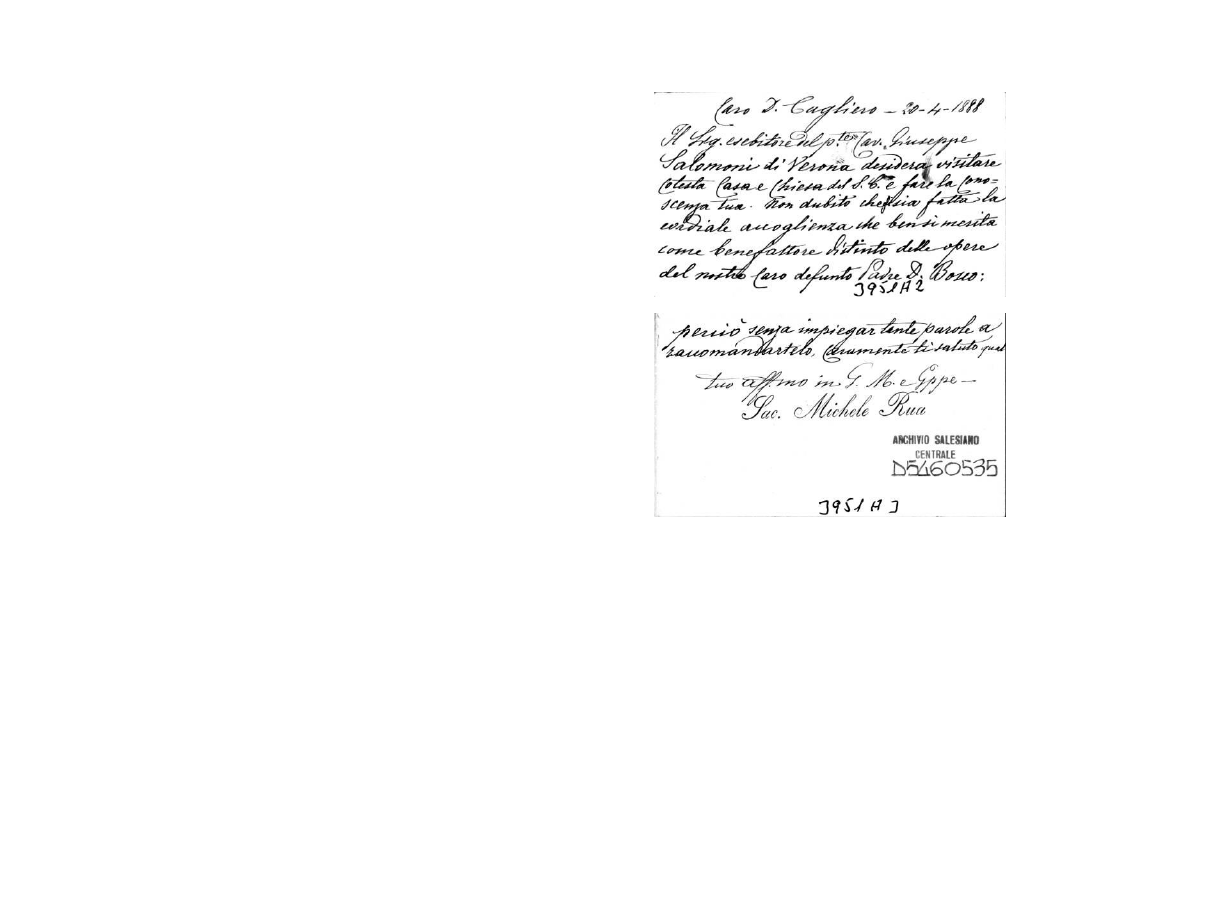 Caro D. Cagliero – 20-4-1888
Il Sig. esebitore del p.te Cav. Giuseppe
Salomoni di Verona desidera visitare
cotesta Casa e Chiesa del S. C. e fare la cono=
scenza tua. Non dubito che sia fatta la
cordiale accoglienza che bensi merita
come benefattore distinto delle opere
del nostro Caro defunto Padre D. Bosco:
3951A2
perciò senza impiegar tante parole a
raccomandartelo, caramente ti saluto qual
tuo aff.mo in G. M. e Gppe –
Sac. Michele Rua
ARCHIVIO SALESIANO
CENTRALE
D5460535
3951A3